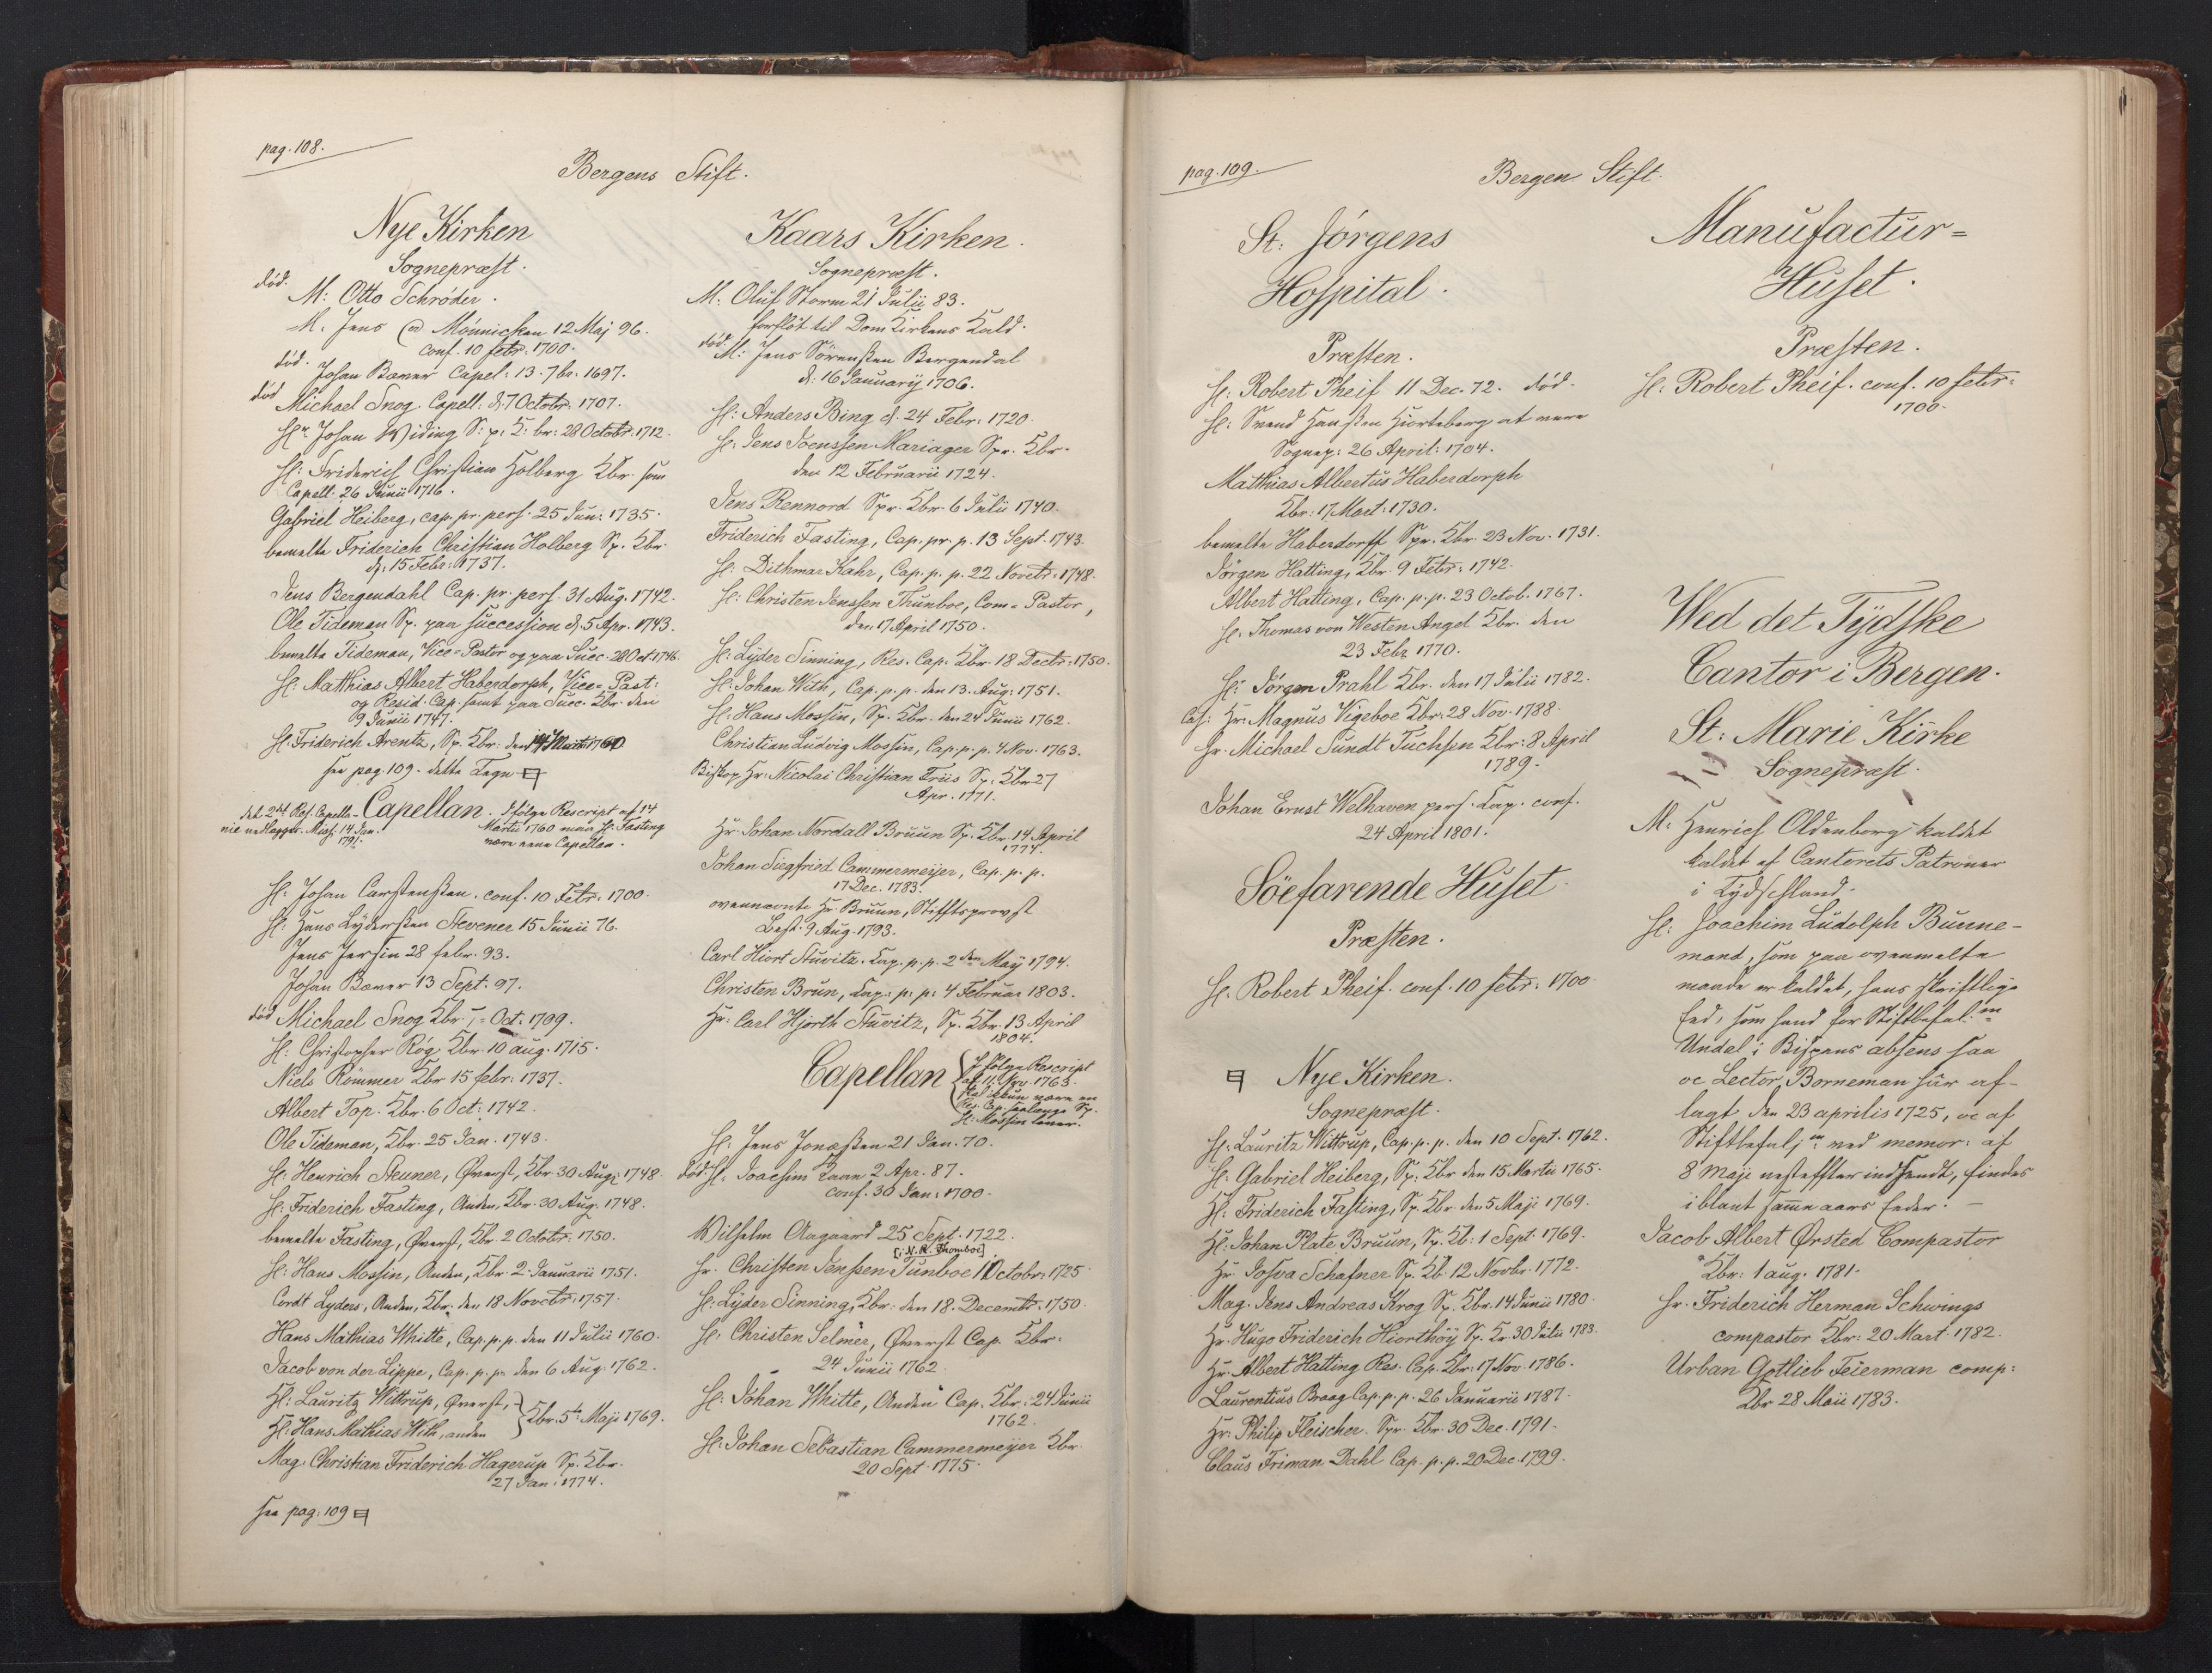 pag. 108.
Bergens Stift.
Nye Kirken
Sognepræst.
død. M: Otto Schrøder.
M. Jens Mönnicken 12 Maj 96.
conf. 10 febr. 1700.
død. Johan Bæver Capel: 13. 7br. 1697.
død Michael Snog. Capell: d. 7 Octobr. 1707.
Hr. Johan Widing S: p: K: br: 28 Octobr. 1712.
H: Friderich Christian Holberg Kbr. som
Capell. 26 Junii 1716.
Gabriel Heiberg, cap. pr. pers. 25 Jun: 1735.
bemelte Friderich Christian Holberg Sp. Kbr.
d: 15 Febr: 1737.
Jens Bergendahl Cap. pr. pers. 31 Aug. 1742.
Ole Tideman Sp. paa succession d. 5 Apr. 1743.
bemelte Tideman, Vice-Pastor og paa Succ. 28 Oct 1746.
H: Matthias Albert Haberdorph, Vice-Past:
og Resid. Cap. samt paa Succ. Kbr. den
9 Junii 1747.
H. Friderich Arentz, Sp. Kbr: den 14 Martii 1760
see pag. 109. dette Tegn
det 2det Res. Capella-
nie nedlegges. Miss. 14 Jan. 1791.
Capellan. Ifølge Rescript af 14
Martii 1760 maa H: Fasting
være eene Capellan.
H. Johan Carstensen. conf. 10 Febr. 1700.
H: Hans Lydersen Stevener 15 Junii 76.
Jens Jersin 28 febr. 93.
Johan Bæver 13 Sept. 97.
død Michael Snog Kbr. 7 Oct. 1709.
H: Christopher Røg Kbr. 10 aug. 1715.
Niels Römmer Kbr 15 febr: 1737.
Albert Top. Kbr. 6 Oct: 1742.
Ole Tideman, Kbr. 25 Jan. 1743.
H: Henrich Steuner, Øverst, Kbr. 30 Aug. 1748.
H: Friderich Fasting, Anden, Kbr. 30 Aug. 1748.
bemelte Fasting, Øverst, Kbr. 2 Octobr. 1750.
H: Hans Mossin, Anden, Kbr. 2 Januarii 1751.
Cordt Lyders, Anden, Kbr. den 18 Novebr: 1757.
Hans Mathias Whitte, Cap. p. p. den 11 Julii 1760.
Jacob von der Lippe, Cap. p. p. den 6 Aug. 1762.
H: Lauritz Wittrup, Øverst,
H: Hans Mathias With, anden } Kbr. 5te Maji 1769.
Mag. Christian Friderich Hagerup Sp. Kbr.
27 Jan. 1774.
see pag: 109
Kaars Kirken.
Sognepræst.
M. Oluf Storm 21 Julii 83.
forfløt til Dom Kirkens Kald.
død. M: Jens Sörensen Bergendal
d: 16 Januarij 1706.
H: Anders Bing d. 24 Febr. 1720.
H: Jens Joenssen Mariager Spr. Kbr.
den 12 Februarii 1724.
Jens Rennord Spr. Kbr. 6 Julii 1740.
Friderich Fasting, Cap. pr. p. 13 Sept. 1743.
H: Dithmar Kahr, Cap. p. p. 22 Novebr: 1748.
H: Christen Jenssen Thunboe, Com-Pastor,
den 17 April 1750.
H: Lyder Sinning, Res. Cap. Kbr. 18 Decbr: 1750.
H: Johan With, Cap. p. p. den 13. Aug: 1751.
H: Hans Mossin, Sp. Kbr. den 24 Junii 1762.
Christian Ludvig Mossin, Cap. p. p. 4 Nov. 1763.
Biskop Hr. Nicolai Christian Friis Sp. Kbr 27
Apr. 1771.
Hr. Johan Nordall Bruun Sp. Kbr. 14 April
1774.
Johan Siegfried Cammermeijer, Cap. p. p.
17 Dec. 1783.
ovennævnte Hr Bruun, Stiftsprovst
Best. 9 Aug. 1793.
Carl Hiort Stuvitz. Cap. p. p. 2den May 1794.
Christen Brun, Cap. p. p: 4 Februar 1803.
Hr: Carl Hjorth Stuvitz, Sp. Kbr. 13 April
1804.
Capellan
Ifølge Rescript
af 11. Nov. 1763.
skal ikkun være en
Res. Cap. saalænge Sp.
H: Mossin lever.
H: Jens Jonassen 21 Jan. 70.
død. H. Joachim Kaae 2 Apr. 87.
conf. 30 Jan: 1700.
Wilhelm Aagaard 25 Sept. 1722.
[: N.K. Thomboe]
Hr. Christen Jenssen Tunboe 11 Octobr: 1725
H: Lyder Sinning, Kbr: den 18. Decembr. 1750.
H: Christen Selmer, Øverst Cap. Kbr:
24 Junii 1762
H: Johan Whitte, Anden Cap. Kbr. 24 Junii
1762.
H: Johan Sebastian Cammermeijer Kbr.
20 Sept. 1775.
pag. 109.
Bergen Stift.
St: Jörgens
Hospital.
Præsten.
H: Robert Pheif 11 Dec. 72. død.
H: Svend Hansen Hjorteberg at være
Sognep: 26 April: 1704.
Matthias Albertus Haberdorph
Kbr: 17 Mart: 1730.
bemelte Haberdorff Spr. Kbr. 23 Nov. 1731.
Jörgen Hatting, Kbr. 9 Febr: 1742.
Albert Hatting, Cap. p. p. 23 Octob. 1767.
H. Thomas von Westen Angel Kbr. den
23 Febr 1770.
Hr Jörgen Prahl Kbr. den 17 Julii 1782.
Cap: Hr: Magnus Vigeboe Kbr: 28 Nov. 1788.
Hr. Michael Sundt Tuchsen Kbr: 8 April
1789.
Johan Ernst Welhaven pers. Cap. conf.
24 April 1801.
Söefarende Huset
Præsten.
H. Robert Pheif. conf. 10 febr. 1700.
Nye Kirken.
Sognepræst.
H: Lauritz Wittrup, Cap. p. p. den 10 Sept. 1762.
H: Gabriel Heiberg, Sp: Kbr den 15 Martii 1765.
H: Friderich Fasting, Sp. Kbr. den 5 Maji 1769.
H: Johan Plate Bruun, Sp. Kb: 1 Sept. 1769.
Hr. Josva Schafner Sp. Kb. 12 Novbr. 1772.
Mag. Jens Andreas Krog Sp. Kbr. 14 Junii 1780.
Hr. Hugo Friderich Hiorthöy Sp. Kr 30 Julii 1783.
Hr. Albert Hatting Res. Cap. Kbr: 17 Nov. 1786.
Laurentius Braag Cap. p. p. 26 Januarii 1787.
Hr: Philip Fleischer. Spr. Kbr. 30 Dec. 1791.
Claus Friman Dahl Cap. p. p. 20 Dec. 1799.
Manufactur=
Huset.
Præsten.
H: Robert Pheif. conf. 10 febr:
1700.
Wed det Tydske
Cantor i Bergen.
St: Marie Kirke
Sognepræst.
M: Henrich Oldenborg kaldet
kaldet af Cantorets Patroner
i Tydschland.
H: Joachim Ludolph Bünne-
mand, som paa ovenmelte
maade er kaldet, hans skriftlige
Eed, som hand for Stiftbefal:m
Undal i Bispens absens saa
oc Lector Borneman har af-
lagt den 23 aprilis 1725, oc af
Stiftbefalj:m ved memor: af
8 Maji nesteffter indsendt, findes
iblant samme aars Eeder. —
Jacob Albert Ørsted Compastor
Kbr: 1 aug. 1781.
Hr. Friderich Herman Schwings
compastor Kbr: 20 Mart 1782.
Urban Gotlieb Feierman comp:
Kbr 28 Maii 1783.